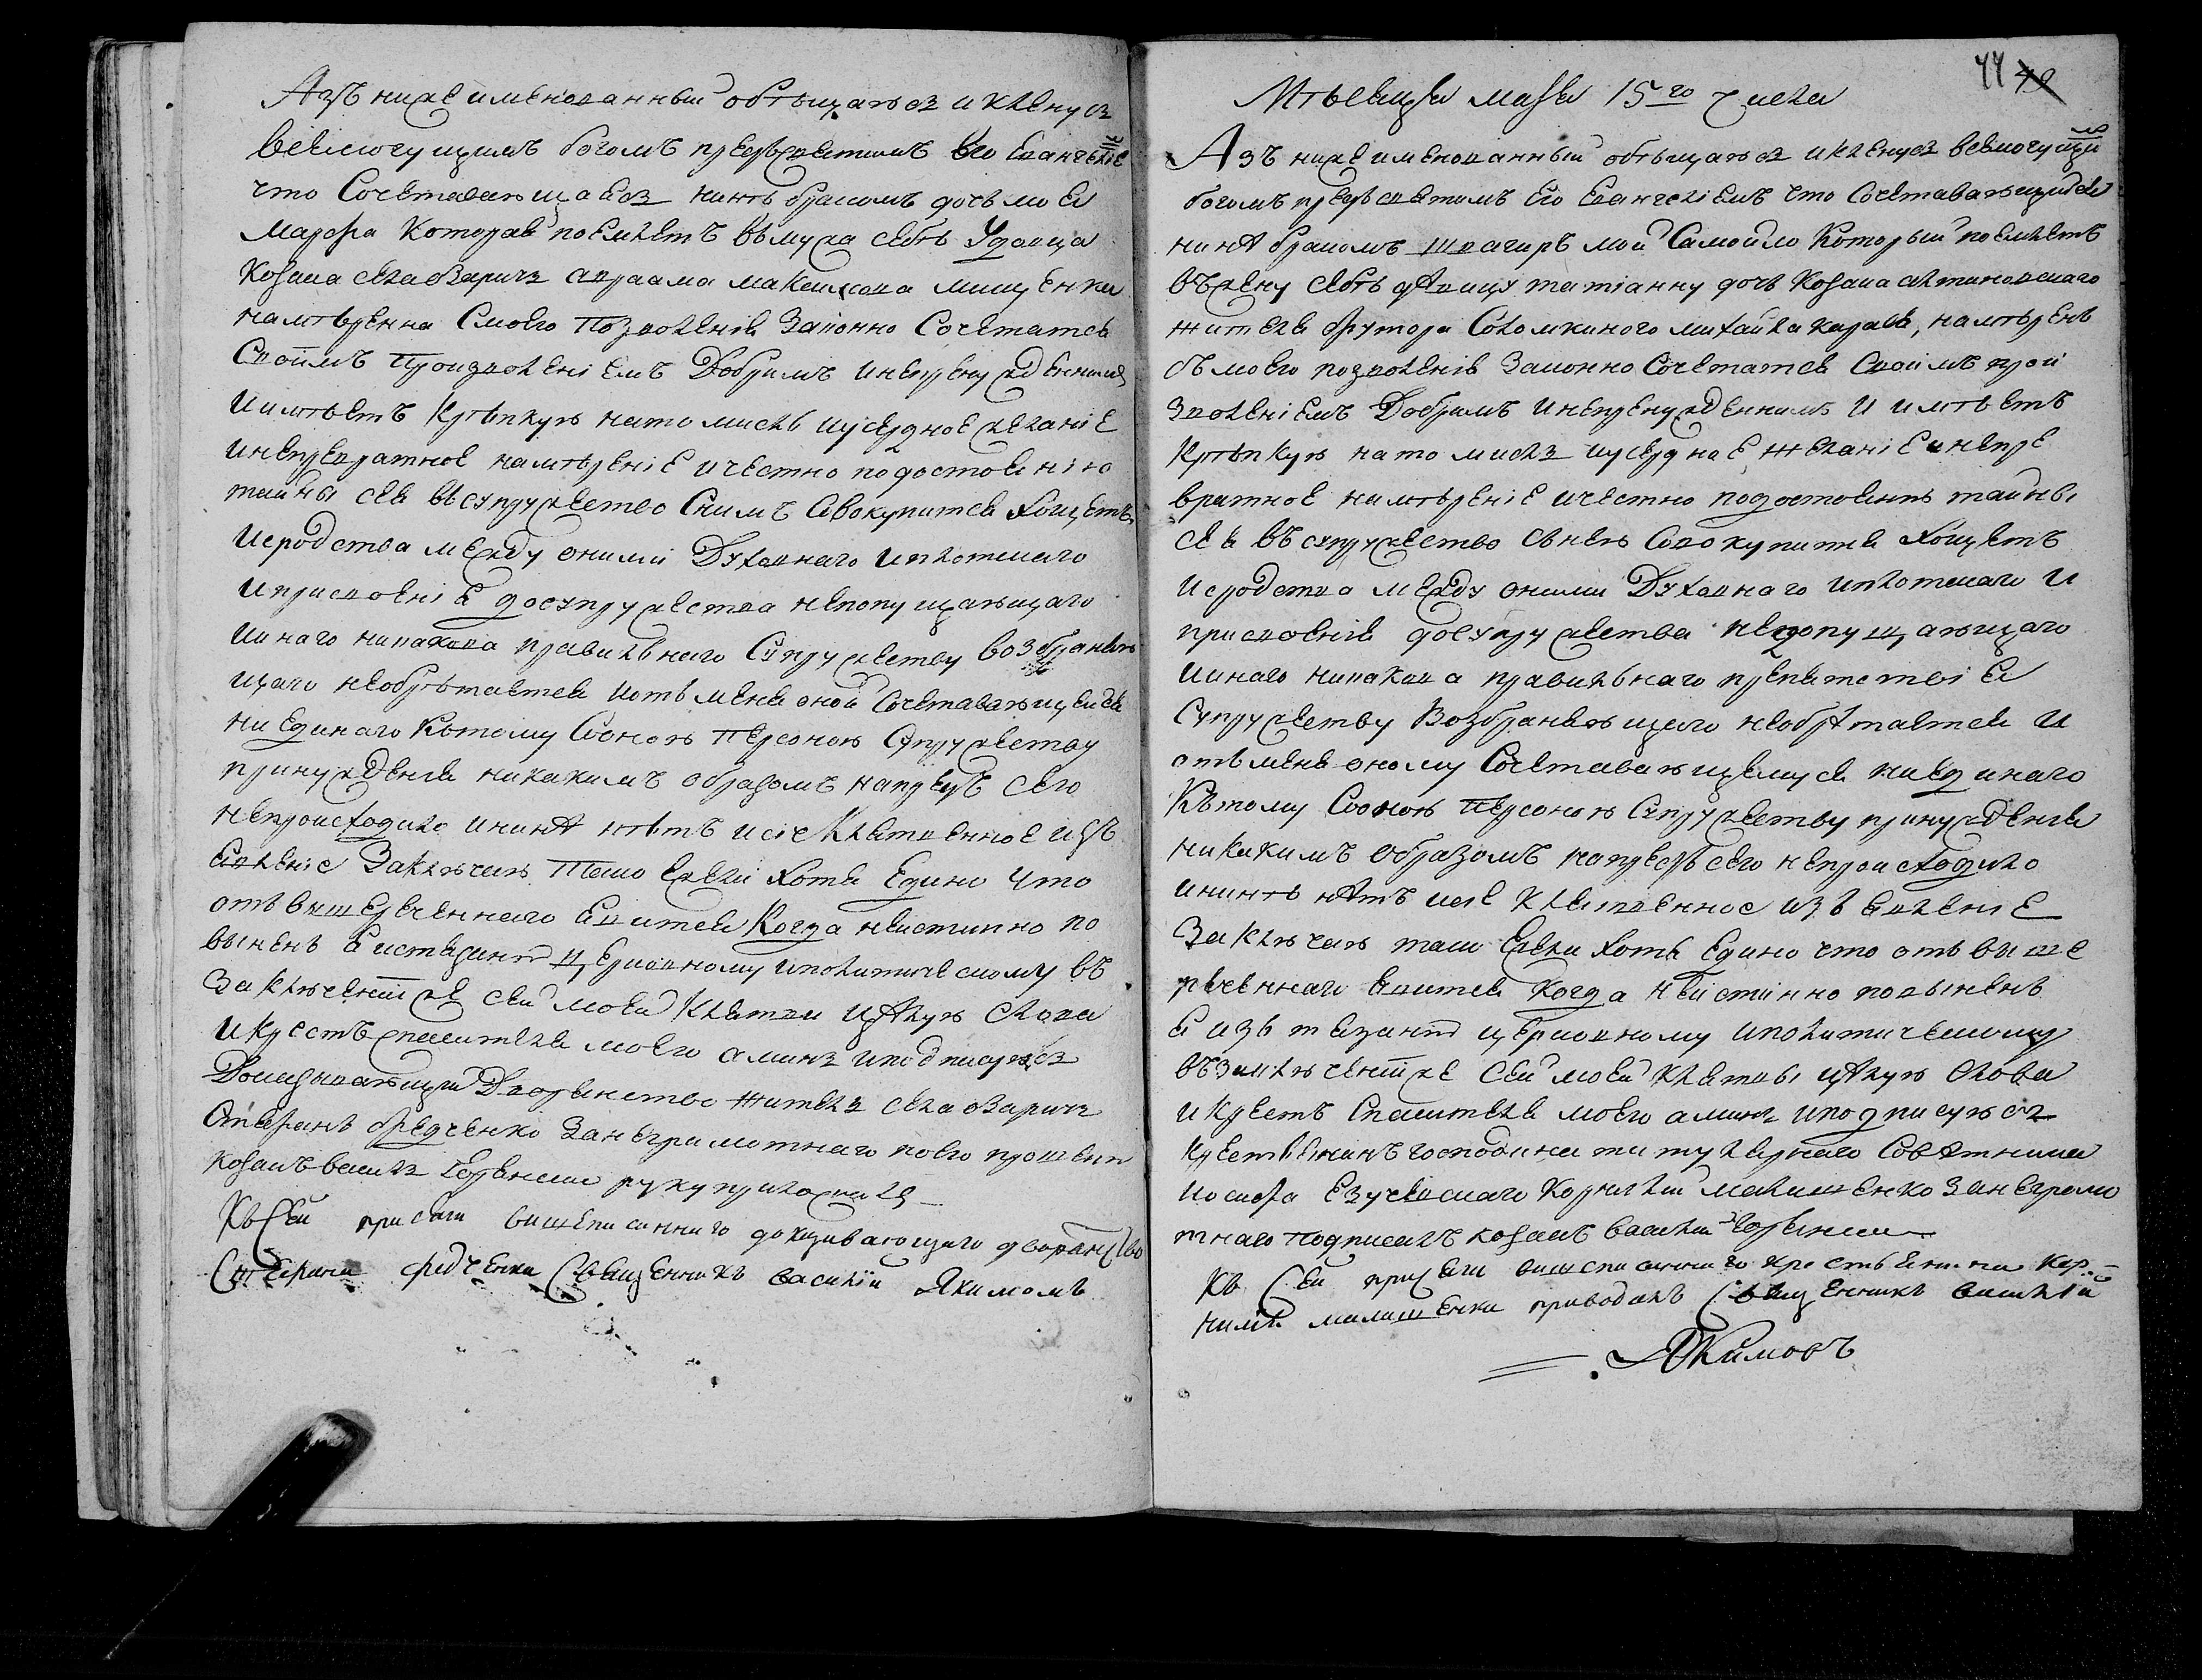 Азъ нижеименованный обѣщаюсь и кленусь
всемогущимъ богомъ предъ святимъ его евангелиемъ
что сочетавающаясь нинѣ бракомъ дочь моя
марфа которая поемлетъ въ мужа себѣ удовца
козака села озаричь авраама максимова мищенка
намѣренна с моего позволенія законно сочетатся
своимъ произволеніемъ добримъ и непренужденнимъ
и имѣетъ крѣпкую на то мисль и усердное желаніе
и непревратное намѣреніе и честно по достоянію
тайны сея въ супружество с нимъ совокупитися хощетъ
и сродства между оними духовнаго и плотскаго
и присвоенія до супружества непопущающаго
и инаго никакова правилнаго супружеству возбраняю
щаго необрѣтается и отъ меня оной сочетавающейся
ни единаго къ тому со оною персоною супружеству
принужденія никакимъ образомъ напредъ сего
непроисходило и нинѣ нѣтъ и сіе клятвенное изъ
явленіе заключаю тако ежели хотя едино что
отъ вишереченнаго явится когда неистинно по
вынень я истязанію церковному и политическому въ
заключеніи же сей моей клятви цѣлую слова
и крестъ спасителя моего аминь и подписуюсь
доказивающій дворянство житель села озаричь
Стефанъ Федченко за неграмотнаго по его прошению
козакъ василь руку приложилъ
Къ сей присяги вишеписаннаго доказивающаго дворянство
Стефана федченка священникъ василій Якимовъ
44
Мѣсяца маія 15го числа
Азъ нижеименованный обѣщаюсь и кленусь всемогущимъ
богомъ предъ святимъ его евангеліемъ что сочетавающійся
нинѣ бракомъ швагиръ мой Самойло который поемлетъ
въ жену себѣ дѣвицу татіанну дочь козака
жителя хутора Соломкиного михайла карася, намѣренъ
съ моего позволенія законно сочетатся своимъ прои
зволеніемъ добримъ и непренужденнимъ и имѣетъ
крѣпкую на то мисль и усердное желаніе и непре
вратное намѣреніе и честно по достоянію тайны
сея въ супружество с нею совокупитися хощетъ
и сродства между оними духовнаго и плотскаго и
присвоенія до супружества недопущающаго
и инаго никакова правилнаго препятствія
супружеству возбраняющаго необрѣтается и
отъ меня оному сочетавающемуся ни единаго
къ тому со оною персоною супружеству принужденія
никакимъ образомъ напредъ сего непроисходило
и нинѣ нѣтъ и сіе клятвенное изъявленіе
заключаю тако ежели хотя едино что отъ више
реченнаго явится когда неистинно повыненъ
я изътязанію церковному и политическому
въ заключеніи же сей моей клятвы цѣлую слова
и крестъ спасителя моего аминь и подписуюсь
крестянинъ господина титулярнаго совѣтника
иосифа Езучевскаго Корнилій малашенко за неграмо
тнаго подписалъ козакъ василий
Къ сей присяги вишеписаннаго крестьянина Кор-
нилія малашенка приводилъ священникъ василій
Якимовъ